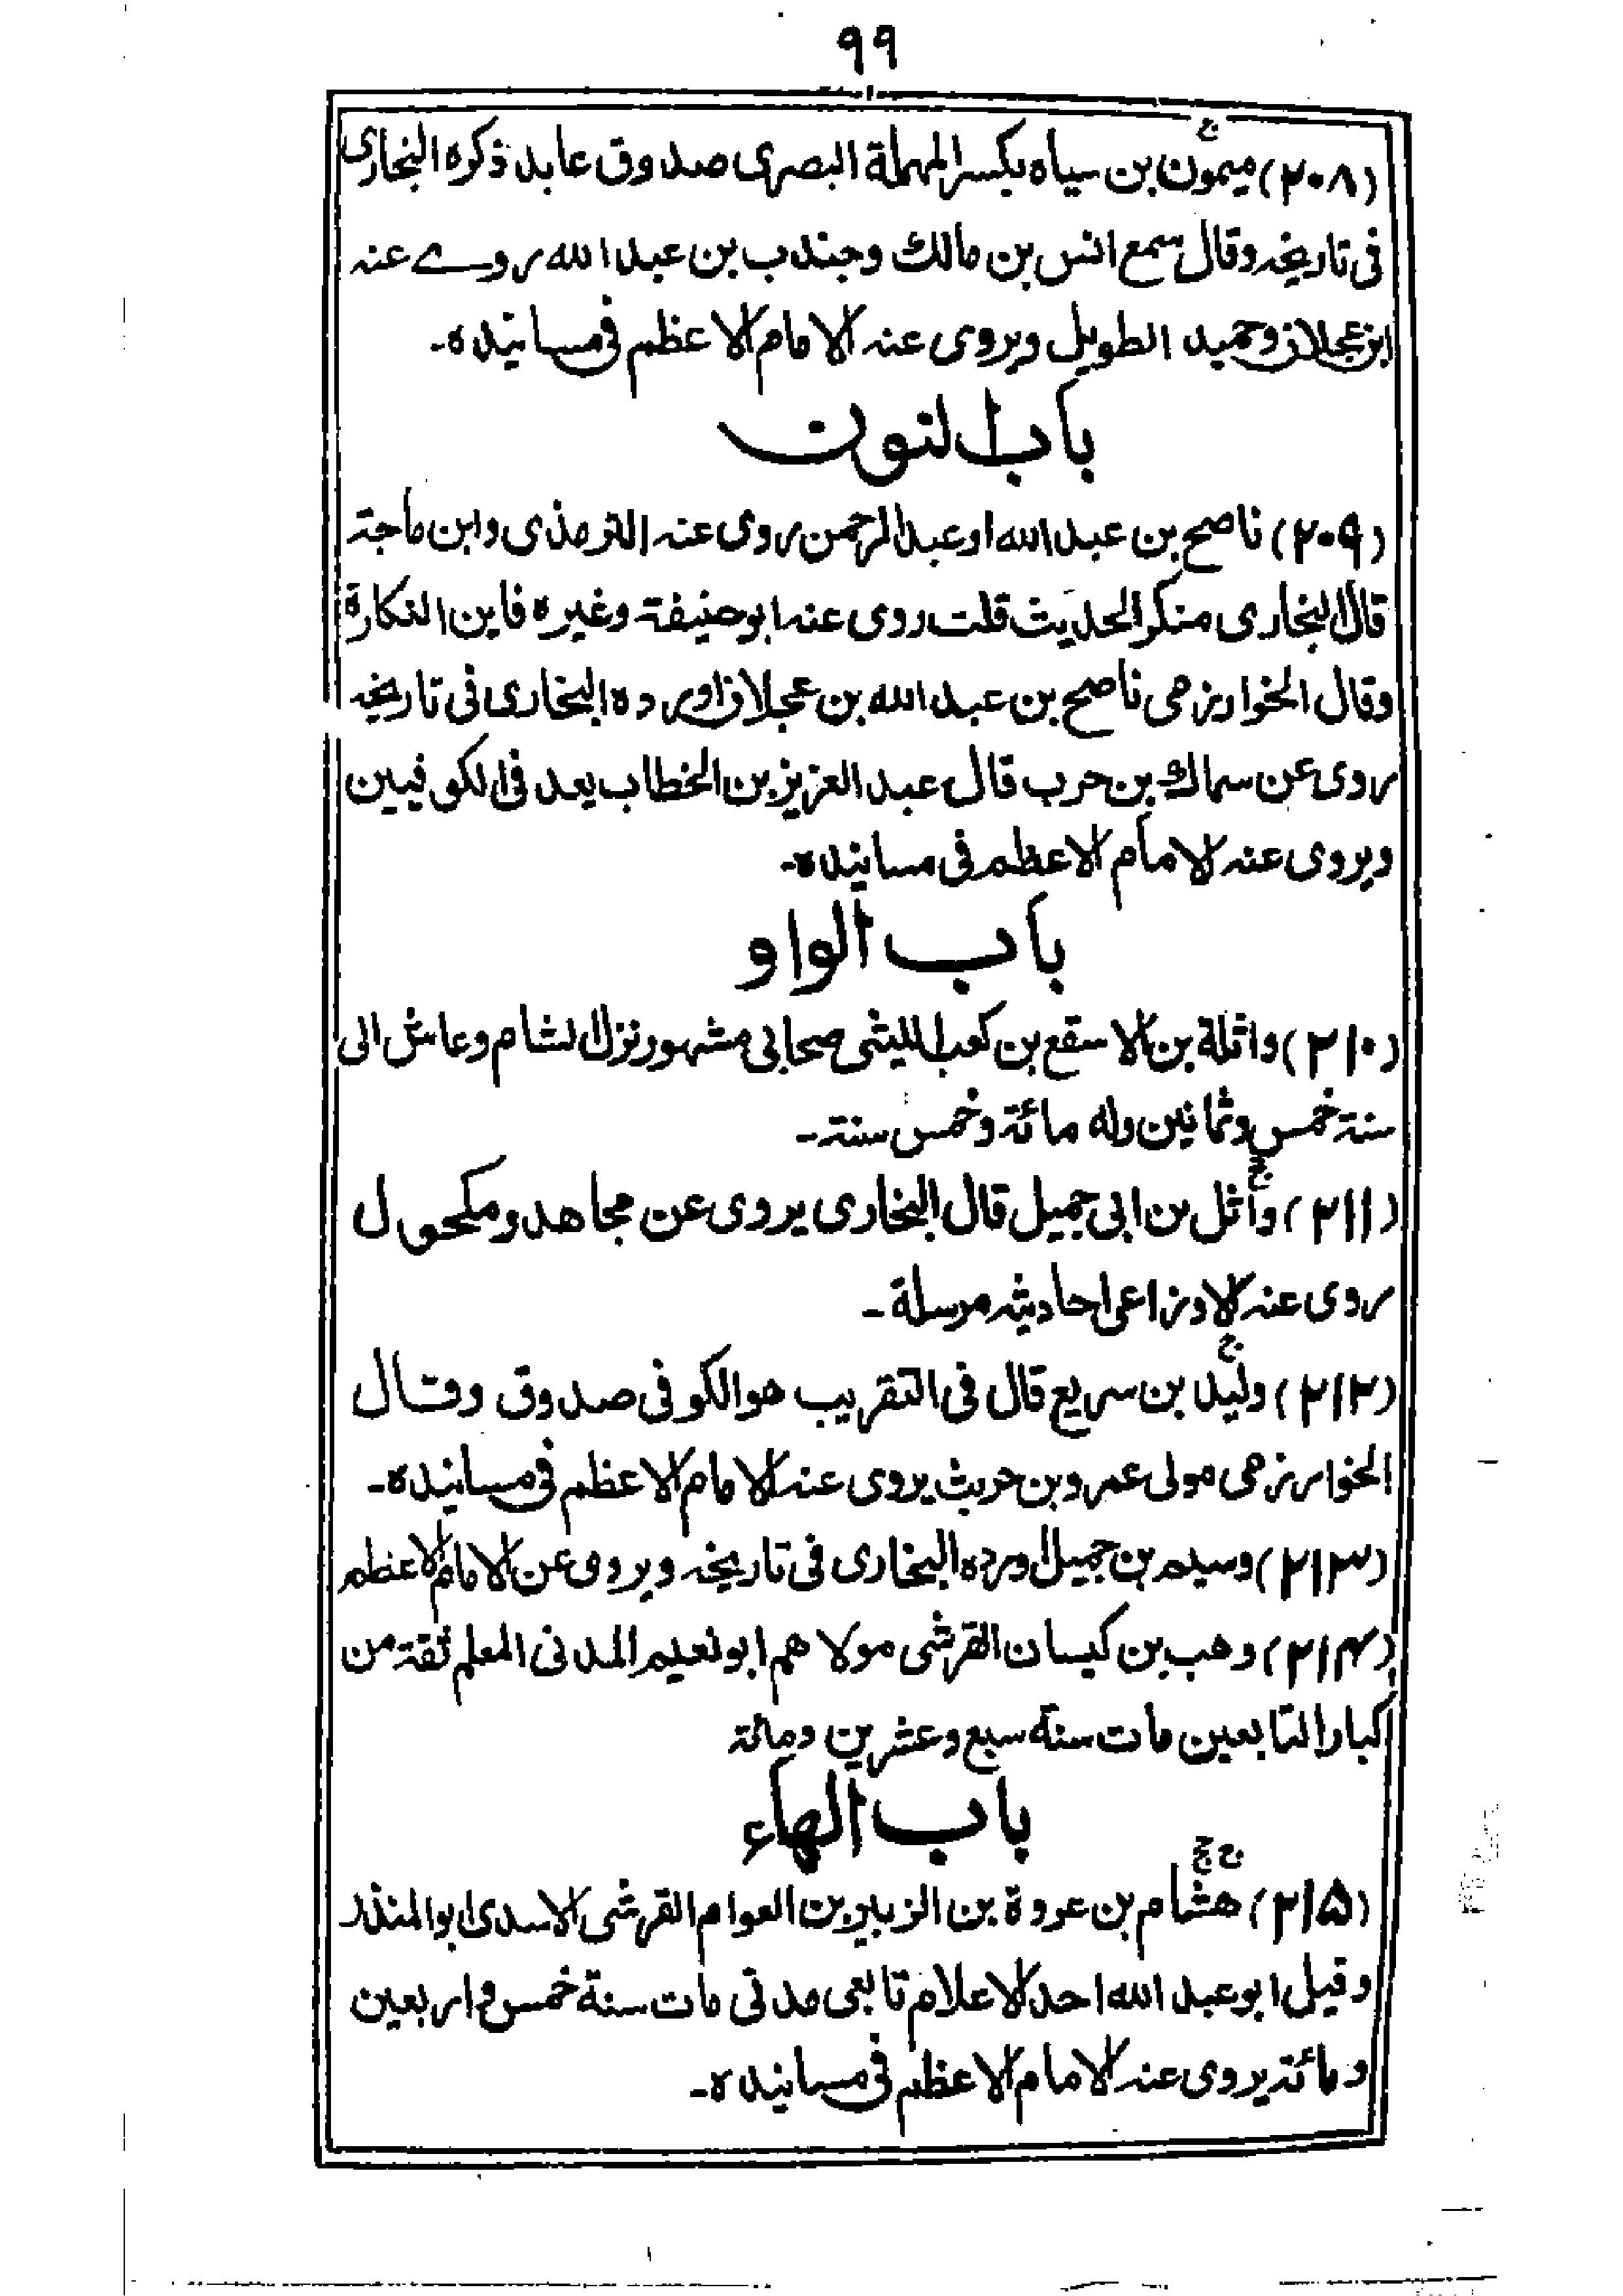 ۹۹
(۲۰۸) میمون بن سیاه بکسر المهملة البصری صدوق عابد ذکره البخاری
فی تاریخه وقال سمع انس بن مالك وجندب بن عبد الله روے عنه
ابن عجلان وحمید الطویل ویروی عنه الامام الاعظم فی مسانیده۔
باب النون
(۲۰۹) ناصح بن عبد الله او عبد الرحمن روی عنه الترمذی وابن ماجة
قال البخاری منکر الحدیث قلت روی عنه ابو حنیفة وغیره فاین النکارة
وقال الخوارزمی ناصح بن عبد الله بن عجلان اورده البخاری فی تاریخه
روی عن سماك بن حرب قال عبد العزیز بن الخطاب یعد فی الکوفیین
ویروی عنه الامام الاعظم فی مسانیده۔
باب الواو
(۲۱۰) واثلة بن الاسقع بن کعب اللیثی صحابی مشهور نزل الشام وعاش الی
سنة خمس وثمانین وله مائة وخمس سنة۔
(۲۱۱) واثل بن ابی جمیل قال البخاری یروی عن مجاهد ومکحول
روی عنه الاوزاعی احادیثه مرسلة۔
(۲۱۲) ولید بن سریع قال فی التقریب هو الکوفی صدوق وقال
الخوارزمی مولی عمرو بن حریث یروی عنه الامام الاعظم فی مسانیده۔
(۲۱۳) وسیم بن جمیل اورده البخاری فی تاریخه ویروی عن الامام الاعظم
(۲۱۴) وهب بن کیسان القرشی مولاهم ابو نعیم المدنی المعلم ثقة من
کبار التابعین مات سنة سبع وعشرین ومائة
باب الهاء
(۲۱۵) هشام بن عروة بن الزبیر بن العوام القرشی الاسدی ابو المنذر
وقیل ابو عبد الله احد الاعلام تابعی مدنی مات سنة خمس واربعین
ومائة یروی عنه الامام الاعظم فی مسانیده۔